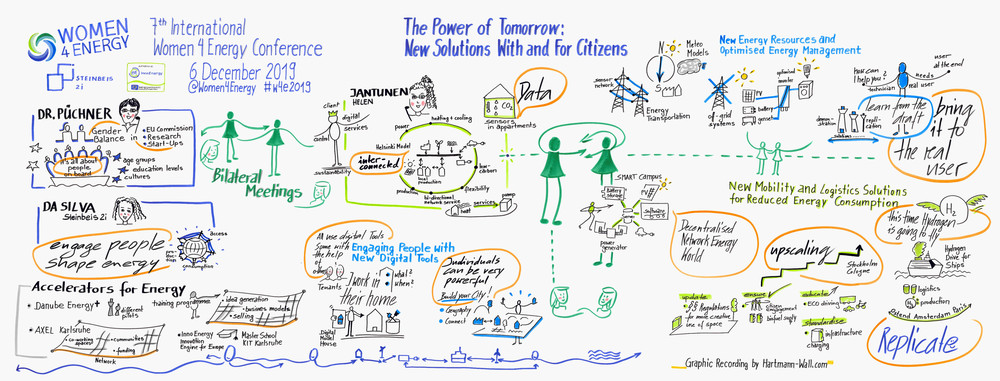 WOMEN
4 ENERGY
7th International
Women 4 Energy Conference
6 December 2019
@Women4Energy #w4e2019
STEINBEIS
2i
InnoEnergy
The Power of Tomorrow:
New Solutions With and For Citizens
DR. PÜCHNER
Gender
Balance in
• EU Commission
• Research
• Start-Ups
it's all about
people
on board
age groups
education levels
cultures
DA SILVA
Steinbeis 2i
engage people
shape energy
access
consumption
Bilateral
Meetings
Accelerators for Energy
• Danube Energy+
different
pilots
training programme
• idea generation
• business models
• selling
• AXEL Karlsruhe
• co-working
spaces
• communities
• funding
Network
• Inno Energy
Innovation
Engine for Europe
• Master School
KIT Karlsruhe
JANTUNEN
HELEN
client
digital
services
control
sustainability
power
heating + cooling
Helsinki Model
inter-
connected
local
production
low
carbon
production
bi-directional
network service
flexibility
heat
services
pump
Data
CO2
sensors
in appartments
All use digital Tools
Some with
the help
of others
Tenants
Engaging People with
New Digital Tools
I work in
their home
what?
when?
Digital
Model
House
Individuals
can be very
powerful
Build your City!
• Geography
• Connect
SMART CAMPUS
battery
storage
PV
power
generator
Meteo
Models
N
S
sensor
network
Energy
Transportation
New Energy Resources and
Optimised Energy Management
PV
battery
genset
optimised
inverter
off-grid
systems
How can
I help you?
technician
user
at the end
needs
real user
learn from the
draft
demon-
stration
repli-
cation
solutions
bring
it to
the real
user
New Mobility and Logistics Solutions
for Reduced Energy Consumption
Decentralised
Network Energy
World
upscaling
Stockholm
Cologne
update
• EU Regulations
for more creative
use of space
ensure
citizen
engagement
biofuel supply
educate
ECO driving
standardise
infrastructure
charging
H2
this time Hydrogen
is going to fly
Hydrogen
Drive for
Ships
logistics
H2
production
Ostend Amsterdam Paris
Replicate
Graphic Recording by Hartmann-Wall.com